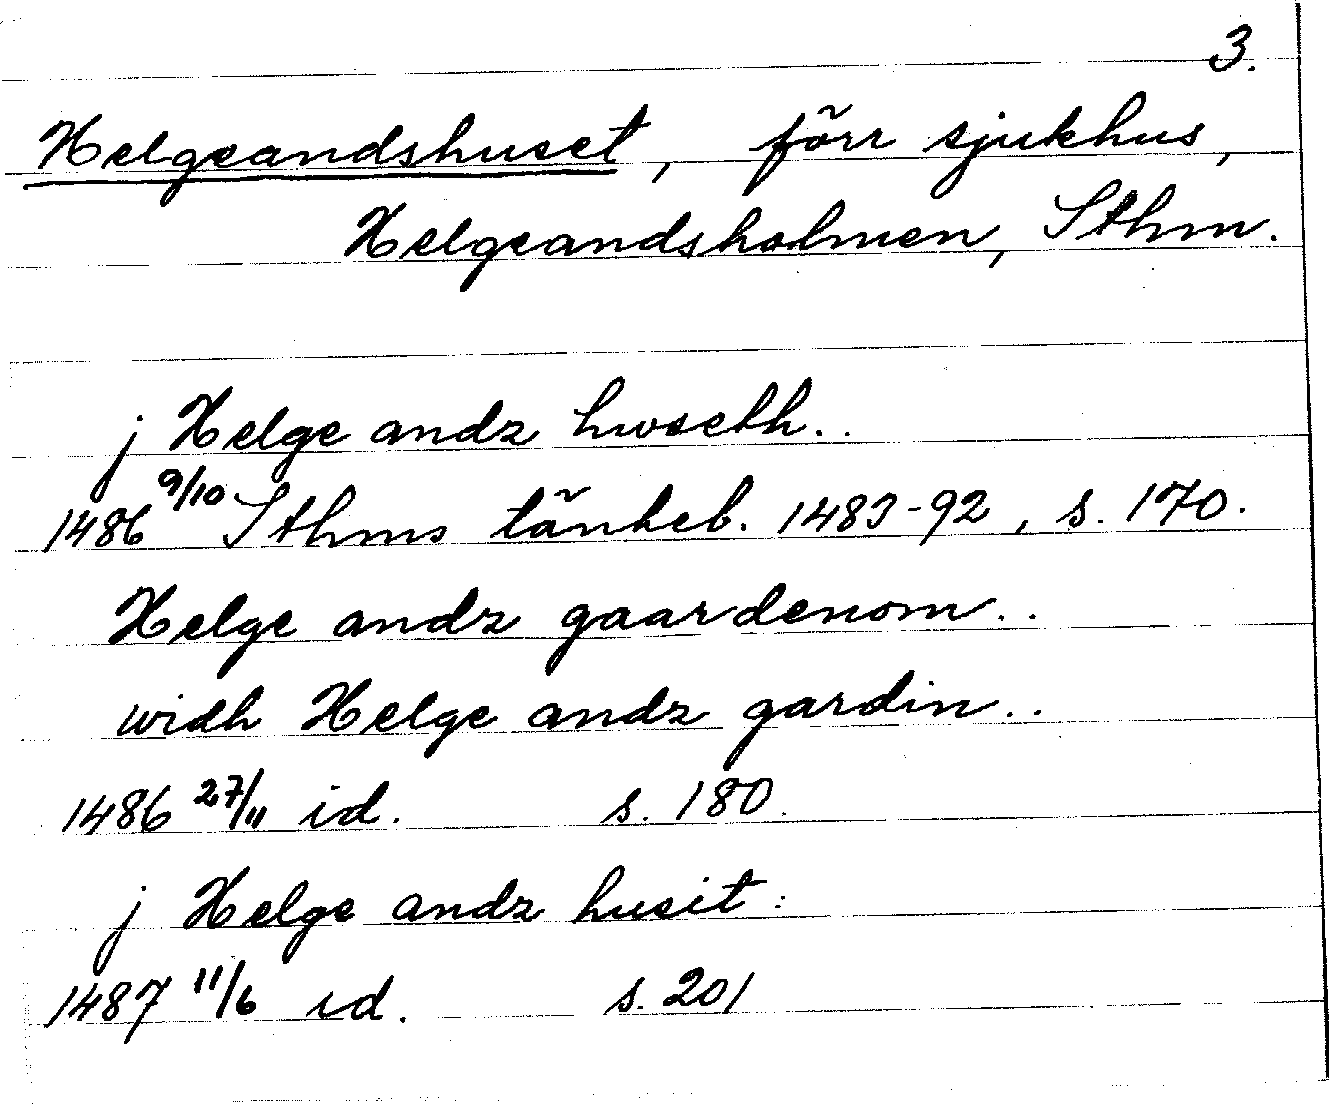 3.
Helgeandshuset, förr sjukhus,
Helgeandsholmen, Sthm.
j Helge andz hwseth..
1486 9/10 Sthms tänkeb. 1483-92, s. 170.
Helge andz gaardenom..
widh Helge andz gardin..
1486 27/11 id. s. 180.
j Helge andz husit:
1487 11/6 id. s. 201